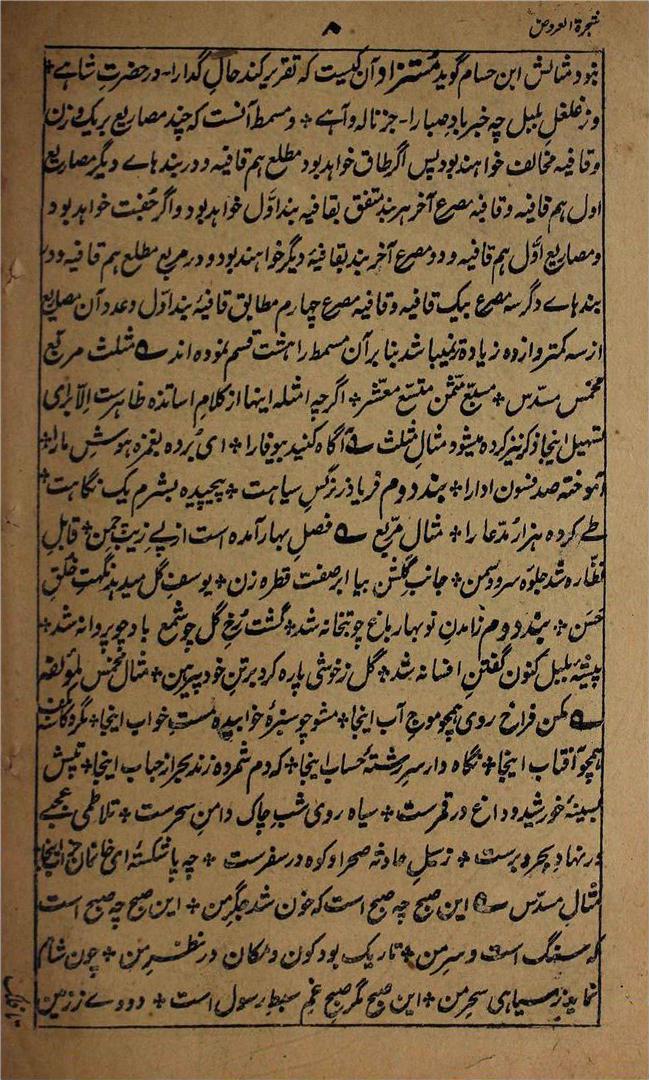 شجرة العروض
۸
بنود مثالش ابن حسام گوید مستزاد آن کیست که تقریر کند حالِ گدارا - در حضرتِ شاهے +
وز غلغلِ بلبل چه خبر بادِ صبارا - جز ناله و آهے + و مسمط آنست که چند مصاریع بر یک وزن
و قافیه مخالف خواهند بود پس اگر طاق خواهد بود مطلع هم قافیه و در بندهاے دیگر مصاریع
اول هم قافیه و قافیه مصرع آخر هر بند متفق بقافیه بند اوّل خواهد بود و اگر جُفت خواهد بود
و مصاریع اوّل هم قافیه و دو مصرع آخر بند بقافیهٔ دیگر خواهند بود و در مربع مطلع هم قافیه و در
بندهاے دگر سه مصرع بیک قافیه و قافیه مصرع چهارم مطابق قافیهٔ بند اوّل و عدد آن مصاریع
از سه کمتر و از ده زیاده نمیباشد بنا بر آن مسمط را هشت قسم نموده اند مثلث مربع
مخمس مسدّس + مسبّع مثمّن متسّع معشّر + اگرچه امثله اینها از کلامِ اساتذه ظاهرست اِلّا برای
تسهیل اینجا ذکر نیز کرده میشود مثالِ مثلث آگاه کنید بیوفارا + ای بُرده بغمزه هوشِ مارا +
آموخته صد فسون ادارا + بند دوم فریاد ز نرگسِ سیاهت + پیچیده بشرم یک نگاهت +
طے کرده هزار مدّعا را + مثال مربّع فصلِ بهار آمده است از پے زیبِ چمن + قابلِ
نظّاره شد جلوهٔ سرو و سمن + جانبِ گلشن بیا ابر صفت قطره زن + یوسفِ گل میدهد نگهتِ خلقِ
حسن + بند دوم ز آمدنِ نوبهار باغ چو بتخانه شد + گشت رُخِ گل چو شمع باد چو پروانه شد +
پیشهٔ بلبل کنون گفتنِ افسانه شد + گل ز خوشی پاره کرد بر تنِ خود پیرهن + مثال مخمس لمؤلفه
مکن فراخ روی همچو موجِ آب اینجا + مشو چو سبزهٔ خوابیده مستِ خواب اینجا +
همچو آفتاب اینجا + نگاه دار سر رشتهٔ حساب اینجا + که دم شمرده زند بحر از حباب اینجا + تپش
بسینهٔ خورشید و داغ در قمرست + سیاه روی شب چاک دامنِ سحرست + تلاطمی عجبے
در نهادِ بحر و برست + ز سیلِ حادثه صحرا و کوه در سفرست + چه پا شکستهٔ ای خانمان خراب اینجا
مثال مسدّس این صبح چه صبح است که خون شد جگرِ من + این صبح چه صبح است
که سنگ است و سرِ من + تاریک بود کون و مکان در نظرِ من + چون شام
نماید ز سیاهی سحرِ من + این صبح مگر صبحِ غمِ سبطِ رسول است + دودے ز زمین